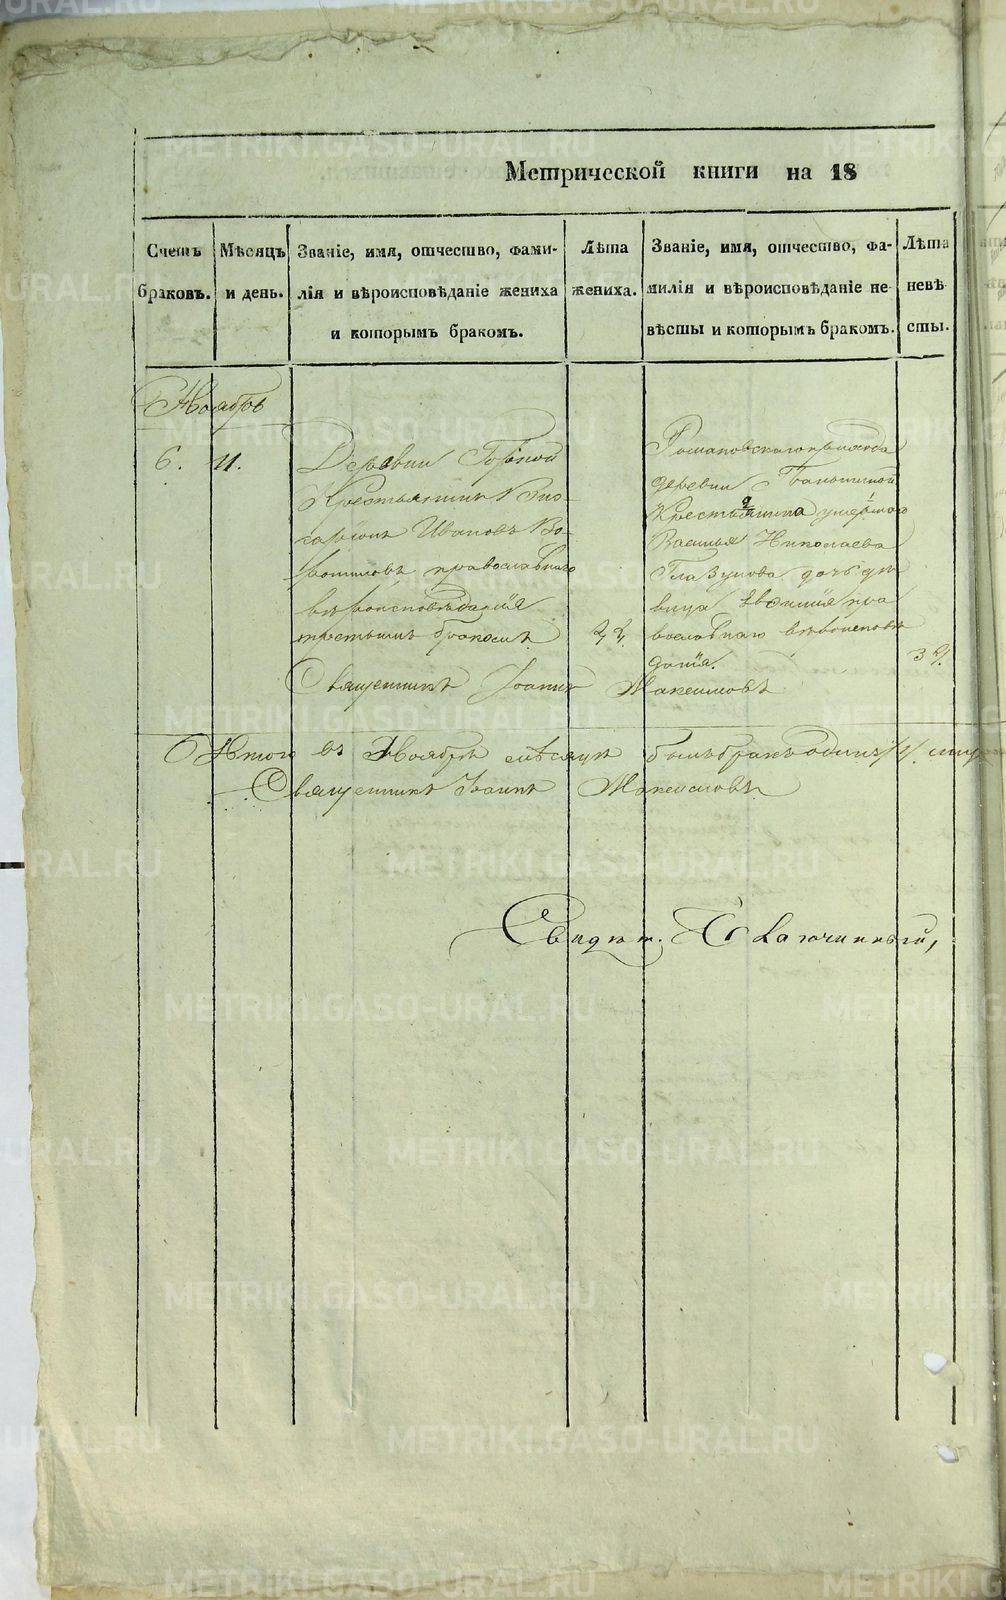 Метрической книги на 18
Счетъ браковъ.
Мѣсяцъ и день.
Званіе, имя, отчество, фами-
лія и вѣроисповѣданіе жениха
и которымъ бракомъ.
Лѣта жениха.
Званіе, имя, отчество, фа-
милія и вѣроисповѣданіе не-
вѣсты и которымъ бракомъ.
Лѣта невѣ-
сты.
Ноябрь
6.
11.
Деревни Горной
Крестьянинъ
Ивановъ Во-
православнаго
вѣроисповѣданія
третьимъ бракомъ
Романовскаго прихода
деревни
Крестьянина умершаго
Василья Николаева
Глазунова дочь дѣ-
вица Евфимія пра
вославнаго вѣроисповѣ
данія.
Священникъ Іоаннъ Максимовъ
Итого въ Ноябрѣ мѣсяцѣ былъ бракъ одинъ /1/.
Священникъ Іоаннъ Максимовъ
Свидѣт. Благочинный,
METRIKI.GASO-URAL.RU